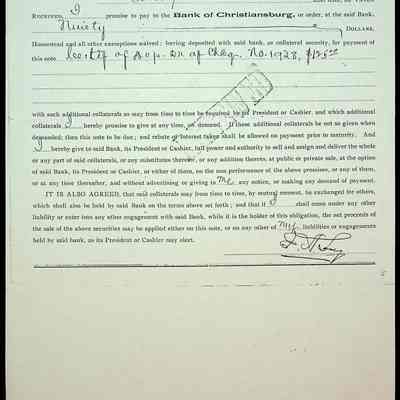 RECEIVED, I promise to pay to the Bank of Christiansburg, or order, at the said Bank,
Ninety DOLLARS,
Homestead and all other exemptions waived: having deposited with said bank, as collateral security, for payment of
this note of No. 1928,
with such additional collaterals as may from time to time be required by its President or Cashier, and which additional
collaterals I hereby promise to give at any time, on demand. If these additional collaterals be not so given when
demanded, then this note to be due; and rebate of interest taken shall be allowed on payment prior to maturity. And
I hereby give to said Bank, its President or Cashier, full power and authority to sell and assign and deliver the whole
or any part of said collaterals, or any substitutes therefor, or any addition thereto, at public or private sale, at the option
of said Bank, its President or Cashier, or either of them, on the non performance of the above promises, or any of them,
or at any time thereafter, and without advertising or giving to me any notice, or making any demand of payment.
IT IS ALSO AGREED, that said collaterals may from time to time, by mutual consent, be exchanged for others,
which shall also be held by said Bank on the terms above set forth; and that if I shall come under any other
liability or enter into any other engagement with said Bank, while it is the holder of this obligation, the net proceeds of
the sale of the above securities may be applied either on this note, or on any other of my liabilities or engagements
held by said bank, as its President or Cashier may elect.